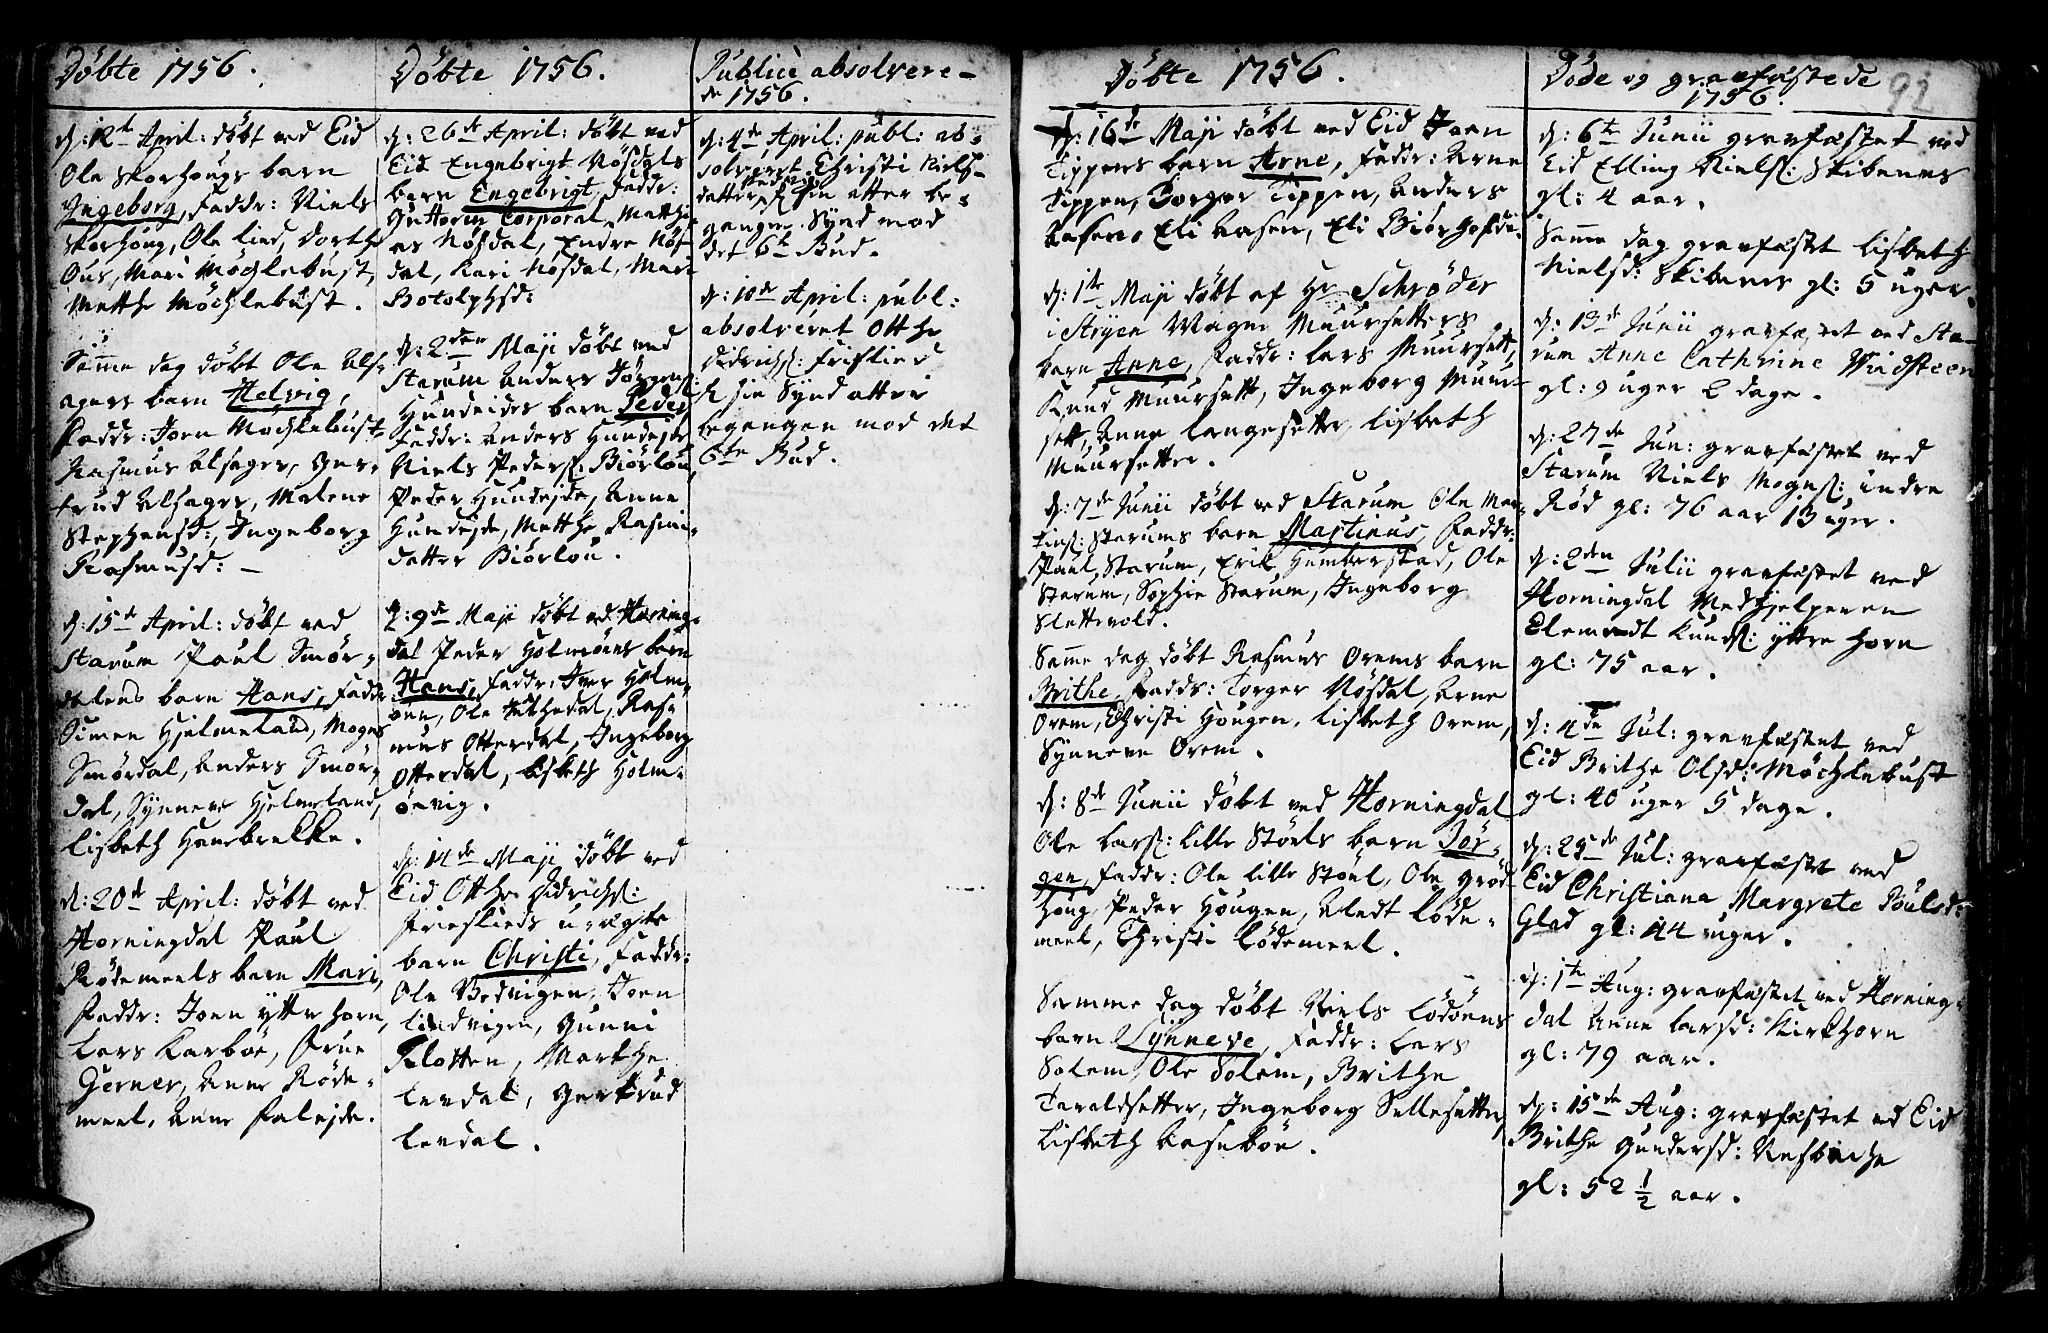 Döbte 1756.
d: 12t April: döbt ved Eid
Ole Skorhougs barn
Ingeborg, Faddr: Niels
Skorhoug, Ole Lind, Dorthe
Ous, Mari Möchlebust,
Metthe Möchlebust.
Samme dag döbt Ole Als-
agers barn Helvig,
Faddr: Joen Möchlebust
Rasmus Alsager, Ger-
trud Alsager, Malene
Stephensd:, Ingeborg
Rasmusd: –
d: 15de April: döbt ved
Starum Paul Smör-
dalens barn Hans, Faddr:
Simen Hjelmeland, Mogns
Smördal, Anders Smör-
dal, Synneve Hjelmeland,
Lisbeth Hanebrekke.
d: 20de April: döbt ved
Horningdal Paul
Rödemeels barn Mari,
Faddr: Joen ytterhorn,
Lars Karböe, Frue
Gerner, Anne Röde-
meel, Anne Falejde.
Döbte 1756.
d: 26de April: döbt ved
Eid Engebrigt Nösdals
barn Engebrigt, Faddr:
Guttorm Corporal, Matthi-
as Nösdal, Endre Nös-
dal, Kari Nösdal, Mari
Botolphsd:
d: 2den Maji döbt ved
Starum Anders Jörgens:
Hundeides barn Peder
Faddr: Anders Hundejde
Niels Peders: Biörlou,
Peder Hundejde, Anne
Hundejde, Metthe Rasmus-
datter Biörlou.
d: 9de Maji döbt ved Horning-
dal Peder Holmöens barn
Hans, Faddr: Iver Holm-
öen, Ole Otterdal, Ras-
mus Otterdal, Ingeborg
Otterdal, Lisbeth Holm-
öevig.
d: 14de Maji döbt ved
Eid Otthe Didrichs:
Frislieds uægte
barn Christi, Faddr:
Ole Bedvigen, Joen
Lindvigen, Gunni
Flotten, Marthe
Levdal, Gertrud
Levdal.
Publicè absolvere-
de 1756.
d: 4de April: publ: ab-
solveret Christi Niels-
datter for sin etter be-
gangne Synd mod
det 6te Bud.
d: 10de April: publ:
absolveret Otthe
Didrichs: Frislied
for sin Synd etter
begangen mod det
6te Bud.
Döbte 1756.
d: 16de Maji döbt ved Eid Joen
Tippens barn Arne, Faddr: Arne
Tippen, Borger Tippen, Anders
Aasen, Eli Aasen, Eli Biörhofde.
d: 1te Maji döbt af Hr Schröder
i Stryen Wagne Muursetters
barn Anne, Faddr: Lars Muursett,
Knud Muursett, Ingeborg Muur-
sett, Anne Langesetter, Lisbeth
Muursetter.
d: 7de Junii döbt ved Starum Ole Mar-
tins: Starums barn Martinus, Faddr:
Paul Starum, Erik Humberstad, Ole
Starum, Sophie Starum, Ingeborg
Slettevold.
Samme dag döbt Rasmus Orems barn
Brithe, Faddr: Torger Nösdal, Arne
Orem, Christi Hougen, Lisbeth Orem,
Synneve Orem.
d: 8de Junii döbt ved Horningdal
Ole Lars: Lille Stöels barn Jör-
gen, Faddr: Ole Lille Stöel, Ole Gröd-
houg, Peder Hougen, Aledt Löde-
meel, Christi Lödemeel.
Samme dag döbt Niels Lödöens
barn Synneve, Faddr: Lars
Solem, Ole Solem, Brithe
Taraldsetter, Ingeborg Sellesetter,
Lisbeth Aaseböe.
Döde og gravfæstede
1756.
92
d: 6te Junii gravfæstet ved
Eid Elling Niels: Skibenes
gl: 4 aar.
Samme dag gravfæstet Lisbeth
Nielsd: Skibenes gl: 5 uger.
d: 13de Junii gravfæstet ved Sta-
rum Anne Cathrine Windsteen
gl: 9 uger 2 dage.
d: 27de Jun: gravfæstet ved
Starum Niels Mogns: indre
Röd gl: 76 aar 13 uger.
d: 2den Julii gravfæstet ved
Horningdal Medhjelperen
Clemedt Knuds: yttre Horn
gl: 75 aar.
d: 4de Jul: gravfæstet ved
Eid Brithe Olsd: Möchlebust
gl: 40 uger 5 dage.
d: 25de Jul: gravfæstet ved
Eid Christiana Margrete Poulsd:
Glad gl: 44 uger.
d: 1te Aug: gravfæstet ved Horning-
dal Anne Larsd: Kirkhorn
gl: 79 aar.
d: 15de Aug: gravfæstet ved Eid
Brithe Gundersd: Nesbache
gl: 52 1/2 aar.